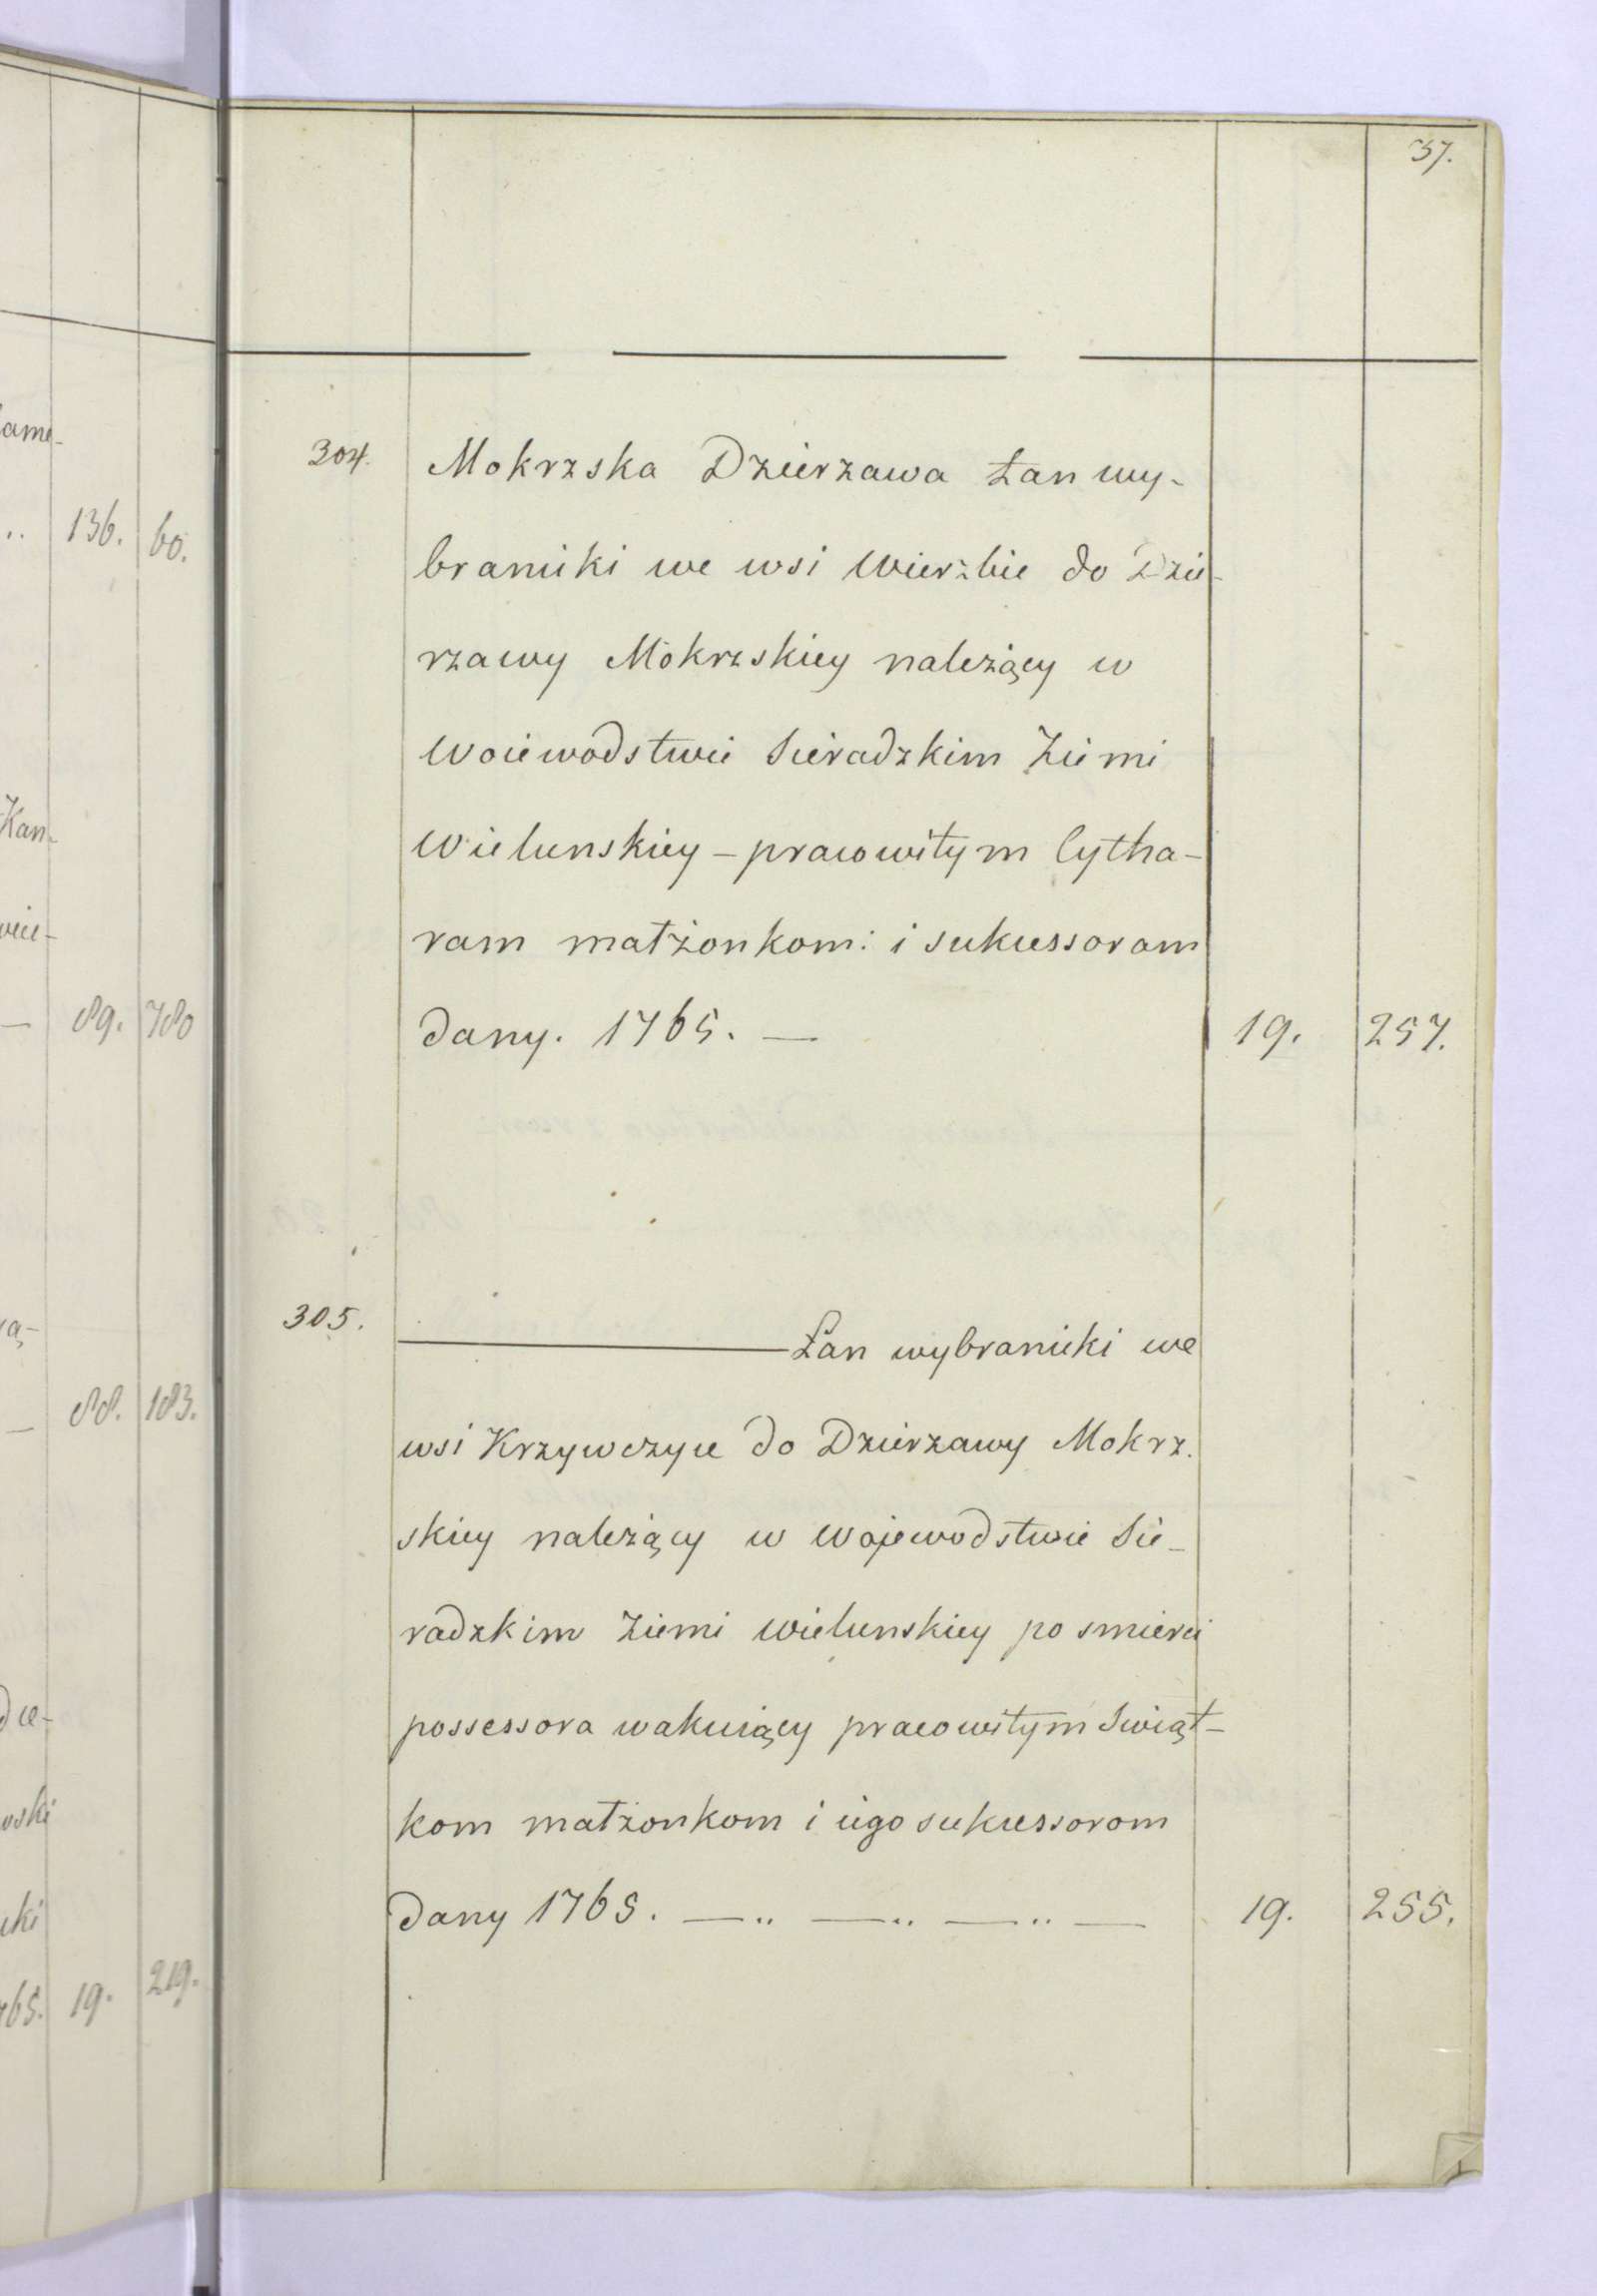 37.
304. Mokrzska Dzierzawa Łan wy-
braniecki we wsi Wierzbie do Dzie-
rzawy Mokrzskiey należący w
Woiewodstwie Sieradzkim Ziemi
Wielunskiey – pracowitym Cytha-
ram małżonkom: i sukcessoram
dany. 1765. — 19. 257.
305. ——— Łan wybraniecki we
wsi Krzywczyce do Dzierzawy Mokrz.
skiey należący w Wojewodstwie Sie-
radzkim Ziemi Wielunskiey po smierci
possessora wakuiący pracowitym Swiąt-
kom małżonkom i iego sukcessorom
dany 1765. —.. —.. —.. — 19. 255.
136. 60.
Kan-
89. 780
88. 183.
765. 19. 219.